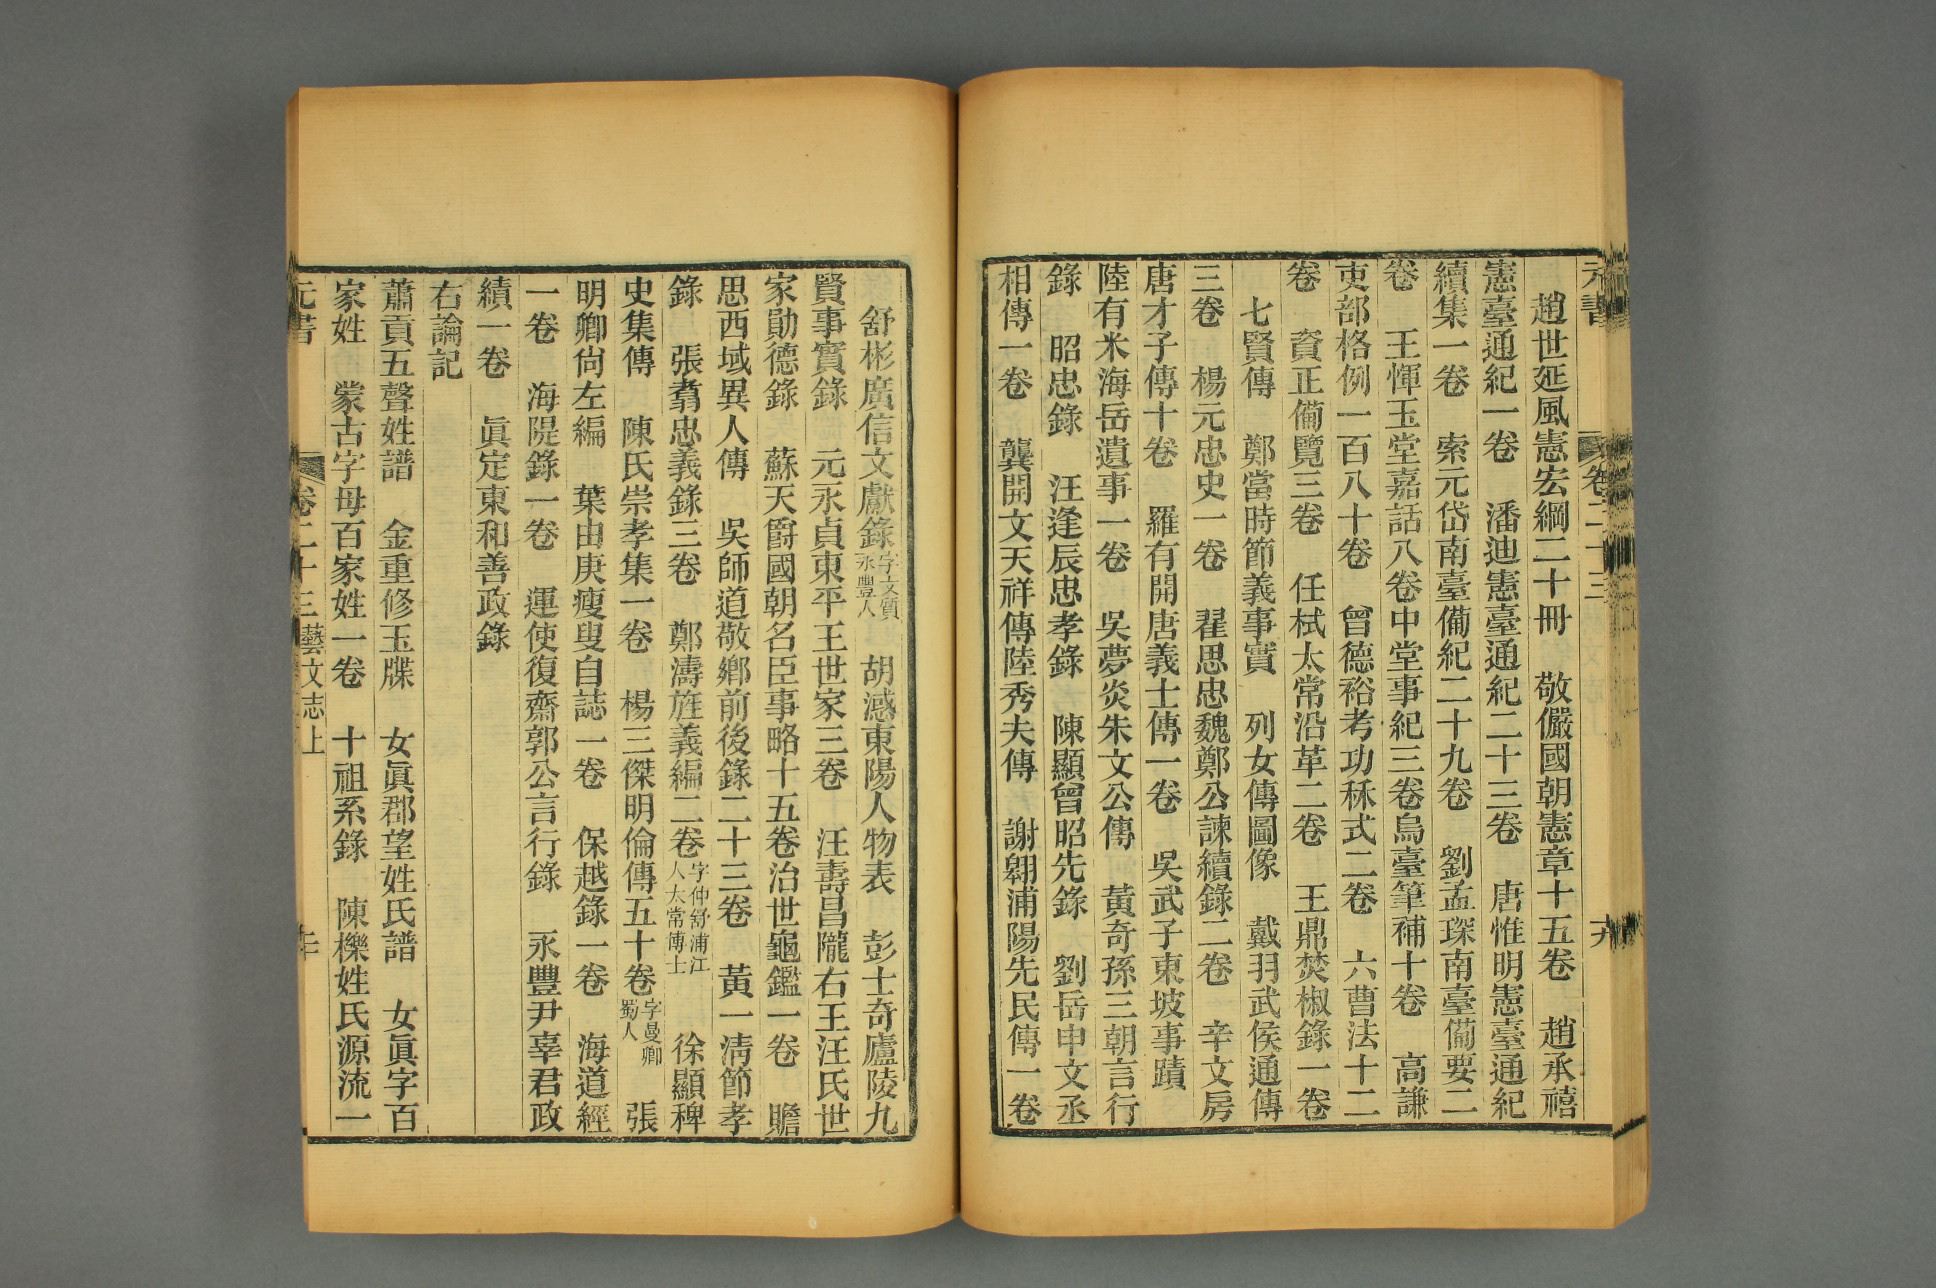 元書
卷二十三
十九
趙世延風憲宏綱二十冊　敬儼國朝憲章十五卷　趙承禧
憲臺通紀一卷　潘迪憲臺通紀二十三卷　唐惟明憲臺通紀
續集一卷　索元岱南臺備紀二十九卷　劉孟琛南臺備要二
卷　王惲玉堂嘉話八卷中堂事紀三卷烏臺筆補十卷　高謙
吏部格例一百八十卷　曾德裕考功秝式二卷　六曹法十二
卷　資正備覽三卷　任栻太常沿革二卷　王鼎焚椒錄一卷
七賢傳　鄭當時節義事實　列女傳圖像　戴羽武侯通傳
三卷　楊元忠史一卷　翟思忠魏鄭公諫續錄二卷　辛文房
唐才子傳十卷　羅有開唐義士傳一卷　吳武子東坡事蹟
陸有米海岳遺事一卷　吳夢炎朱文公傳　黃奇孫三朝言行
錄　昭忠錄　汪逢辰忠孝錄　陳顯曾昭先錄　劉岳申文丞
相傳一卷　龔開文天祥傳陸秀夫傳　謝翱浦陽先民傳一卷
舒彬廣信文獻錄字文質永豐人　胡濙東陽人物表　彭士奇廬陵九
賢事實錄　元永貞東平王世家三卷　汪壽昌隴右王汪氏世
家勛德錄　蘇天爵國朝名臣事略十五卷治世龜鑑一卷　贍
思西域異人傳　吳師道敬鄉前後錄二十三卷　黃一清節孝
錄　張翥忠義錄三卷　鄭濤旌義編二卷字仲舒浦江人太常傅士　徐顯稗
史集傳　陳氏崇孝集一卷　楊三傑明倫傳五十卷字曼卿蜀人　張
明卿尙左編　葉由庚瘦叟自誌一卷　保越錄一卷　海道經
一卷　海隄錄一卷　運使復齋郭公言行錄　永豐尹辜君政
績一卷　眞定東和善政錄
右論記
蕭貢五聲姓譜　金重修玉牒　女眞郡望姓氏譜　女眞字百
家姓　蒙古字母百家姓一卷　十祖系錄　陳櫟姓氏源流一
元書
卷二十三藝文志上
二十